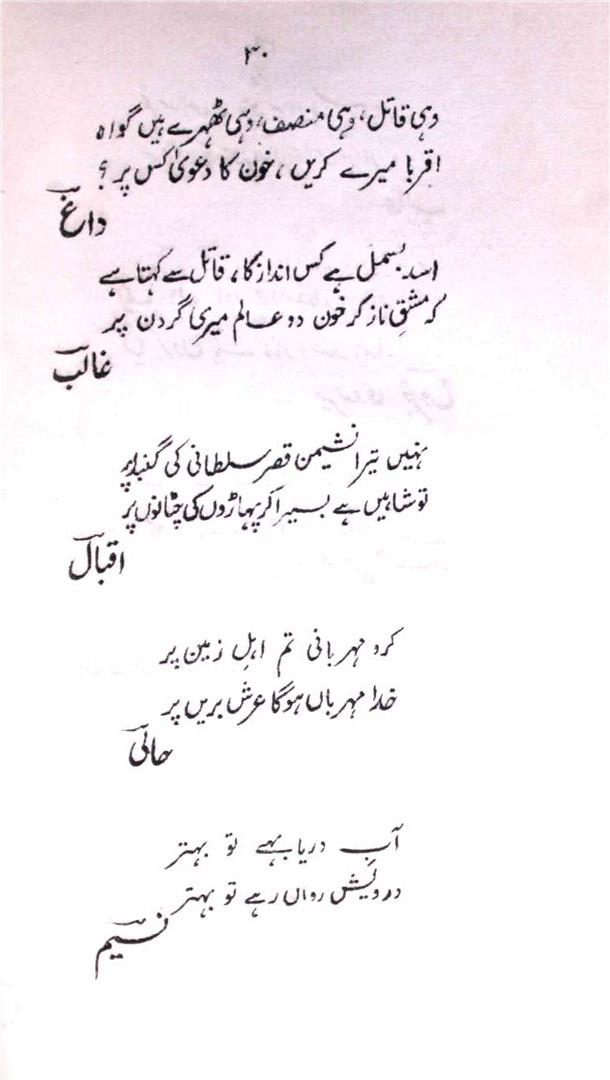 ۴۰
وہی قاتل، وہی منصف، وہی ٹھہرے ہیں گواہ
اقربا میرے کریں، خون کا دعویٰ کس پر؟
داغ
اسد بسمل ہے کس انداز کا، قاتل سے کہتا ہے
کہ مشقِ ناز کر خون دو عالم میری گردن پر
غالب
نہیں تیرا نشیمن قصر سلطانی کی گنبد پر
تو شاہیں ہے بسیرا کر پہاڑوں کی چٹانوں پر
اقبال
کرو مہربانی تم اہلِ زمین پر
خدا مہرباں ہوگا عرش بریں پر
حالی
آبِ دریا بہے تو بہتر
درویش رواں رہے تو بہتر
نسیم